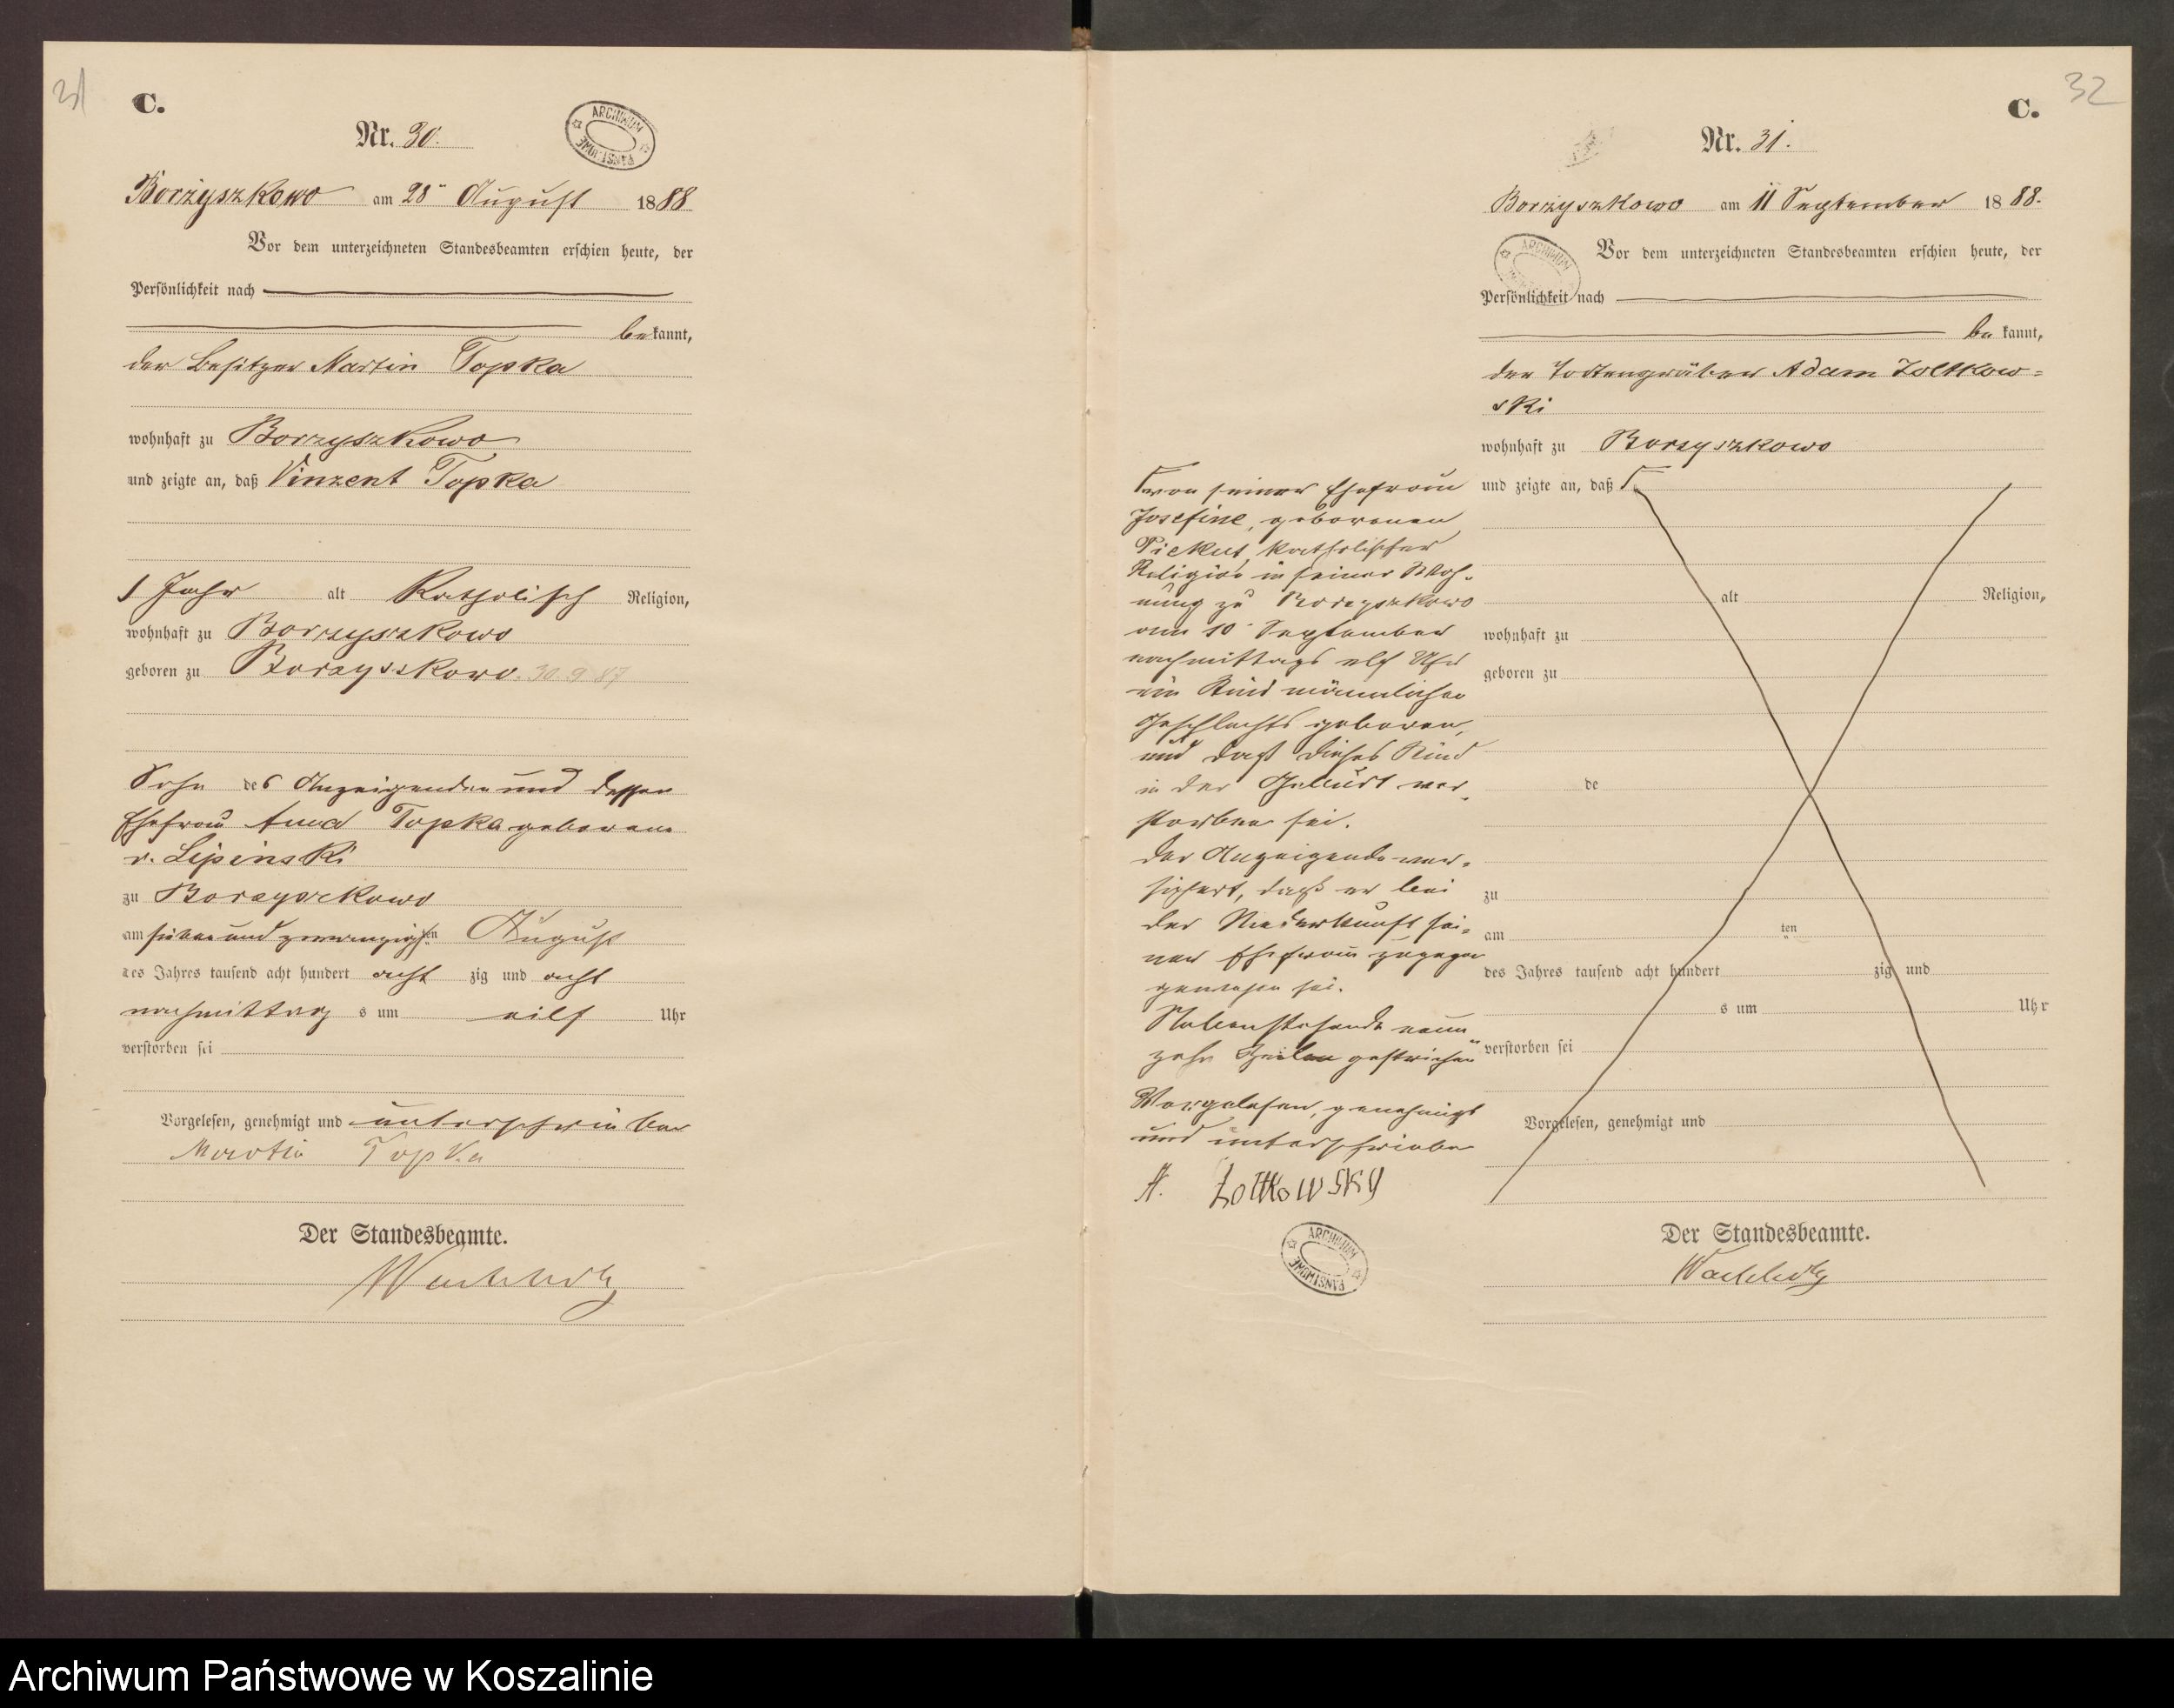 31
C.
Nr. 30.
ARCHIWUM PAŃSTWOWE
Borzyszkowo am 28 August 1888
Vor dem unterzeichneten Standesbeamten erschien heute, der
Persönlichkeit nach
bekannt,
der Besitzer Martin Topka
wohnhaft zu Borzyszkowo
und zeigte an, daß Vinzent Topka
1 Jahr alt Katholisch Religion,
wohnhaft zu Borzyszkowo
geboren zu Borzyszkowo. 30.9 87
Sohn des Anzeigenden und dessen
Ehefrau Anna Topka geborene
v. Lipinski
zu Borzyszkowo
am sieben und zwanzigsten August
des Jahres tausend acht hundert acht zig und acht
nachmittag s um eilf Uhr
verstorben sei
Vorgelesen, genehmigt und unterschrieben
Martin Topka
Der Standesbeamte.
32
C.
Nr. 31.
Borzyszkowo am 11 September 1888.
ARCHIWUM
Vor dem unterzeichneten Standesbeamten erschien heute, der
Persönlichkeit nach
be kannt,
der Todtengräber Adam Zoltkow=
ski
wohnhaft zu Borzyszkowo
und zeigte an, daß
von seiner Ehefrau
Josefine, geborenen
Piekut katholischer
Religion in seiner Woh-
nung zu Borzyszkowo
am 10 September
nachmittags elf Uhr
ein Kind männlichen
Geschlechts geboren,
und daß dieses Kind
in der Geburt ver-
storben sei.
Der Anzeigende ver-
sichert, daß er bei
der Niederkunft sei-
ner Ehefrau zugegen
gewesen sei.
Nebenstehende neun
zehn Zeilen gestrichen
Vorgelesen, genehmigt
und unterschrieben
A. Zoltkowsky
ARCHIWUM PAŃSTWOWE
alt Religion,
wohnhaft zu
geboren zu
de
zu
am ten
des Jahres tausend acht hundert zig und
s um Uhr
verstorben sei
Vorgelesen, genehmigt und
Der Standesbeamte.
Archiwum Państwowe w Koszalinie